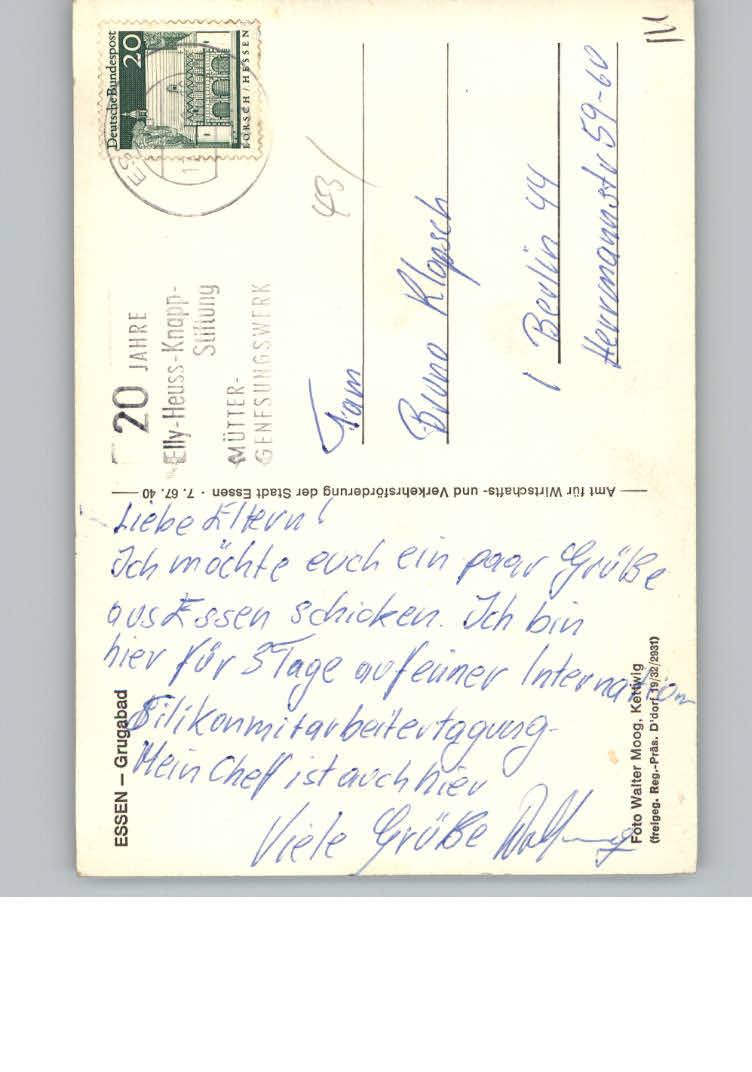 Deutsche Bundespost
20
LORSCH / HESSEN
20 JAHRE
Elly-Heuss-Knapp-
Stiftung
MÜTTER-
GENESUNGSWERK
Fam
Bruno Klapsch
1 Berlin 44
Herrmannstr 59-60
Amt für Wirtschafts- und Verkehrsförderung der Stadt Essen · 7. 67. 40
Liebe Eltern!
Ich möchte euch ein paar Grüße
aus Essen schicken. Ich bin
hier für 3 Tage auf einer Internation
Silikonmitarbeitertagung.
Mein Cheff ist auch hier
Viele Grüße
ESSEN – Grugabad
Foto Walter Moog, Kettwig
(freigeg. Reg.-Präs. D'dorf 19/32/2931)